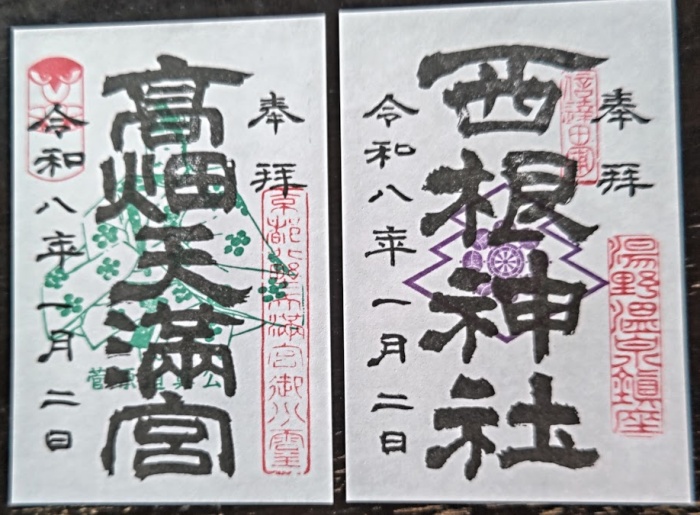 奉拝
西根神社
信達四郡
湯野温泉鎮座
令和八年一月二日
奉拝
高畑天満宮
京都北野天満宮御分霊
菅原道真公
令和八年一月二日